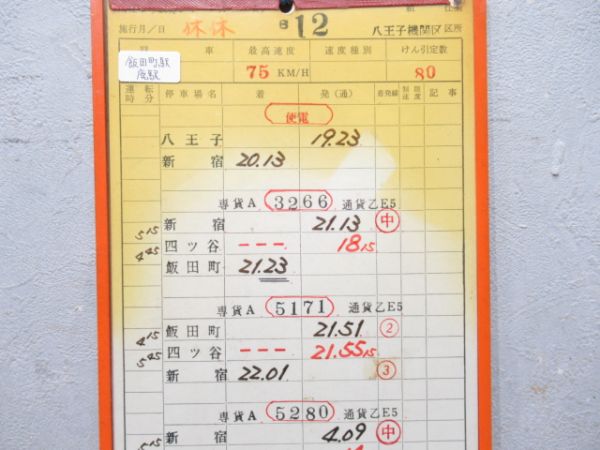 施行月/日 休休 B 12 八王子機関区 区所
飯田町駅
廃駅
車 最高速度 速度種別 けん引定数
75 KM/H 80
運転時分 停車場名 着 発(通) 着発線 制限速度 記事
便電
八王子 19.23
新宿 20.13
専貨A 3266 通貨乙E5
新宿 21.13 中
5 15
四ツ谷 --- 18 15
4 45
飯田町 21.23
専貨A 5171 通貨乙E5
飯田町 21.51 2
4 15
四ツ谷 --- 21.55 15
5 45
新宿 22.01 3
専貨A 5280 通貨乙E5
新宿 4.09 中
5 15